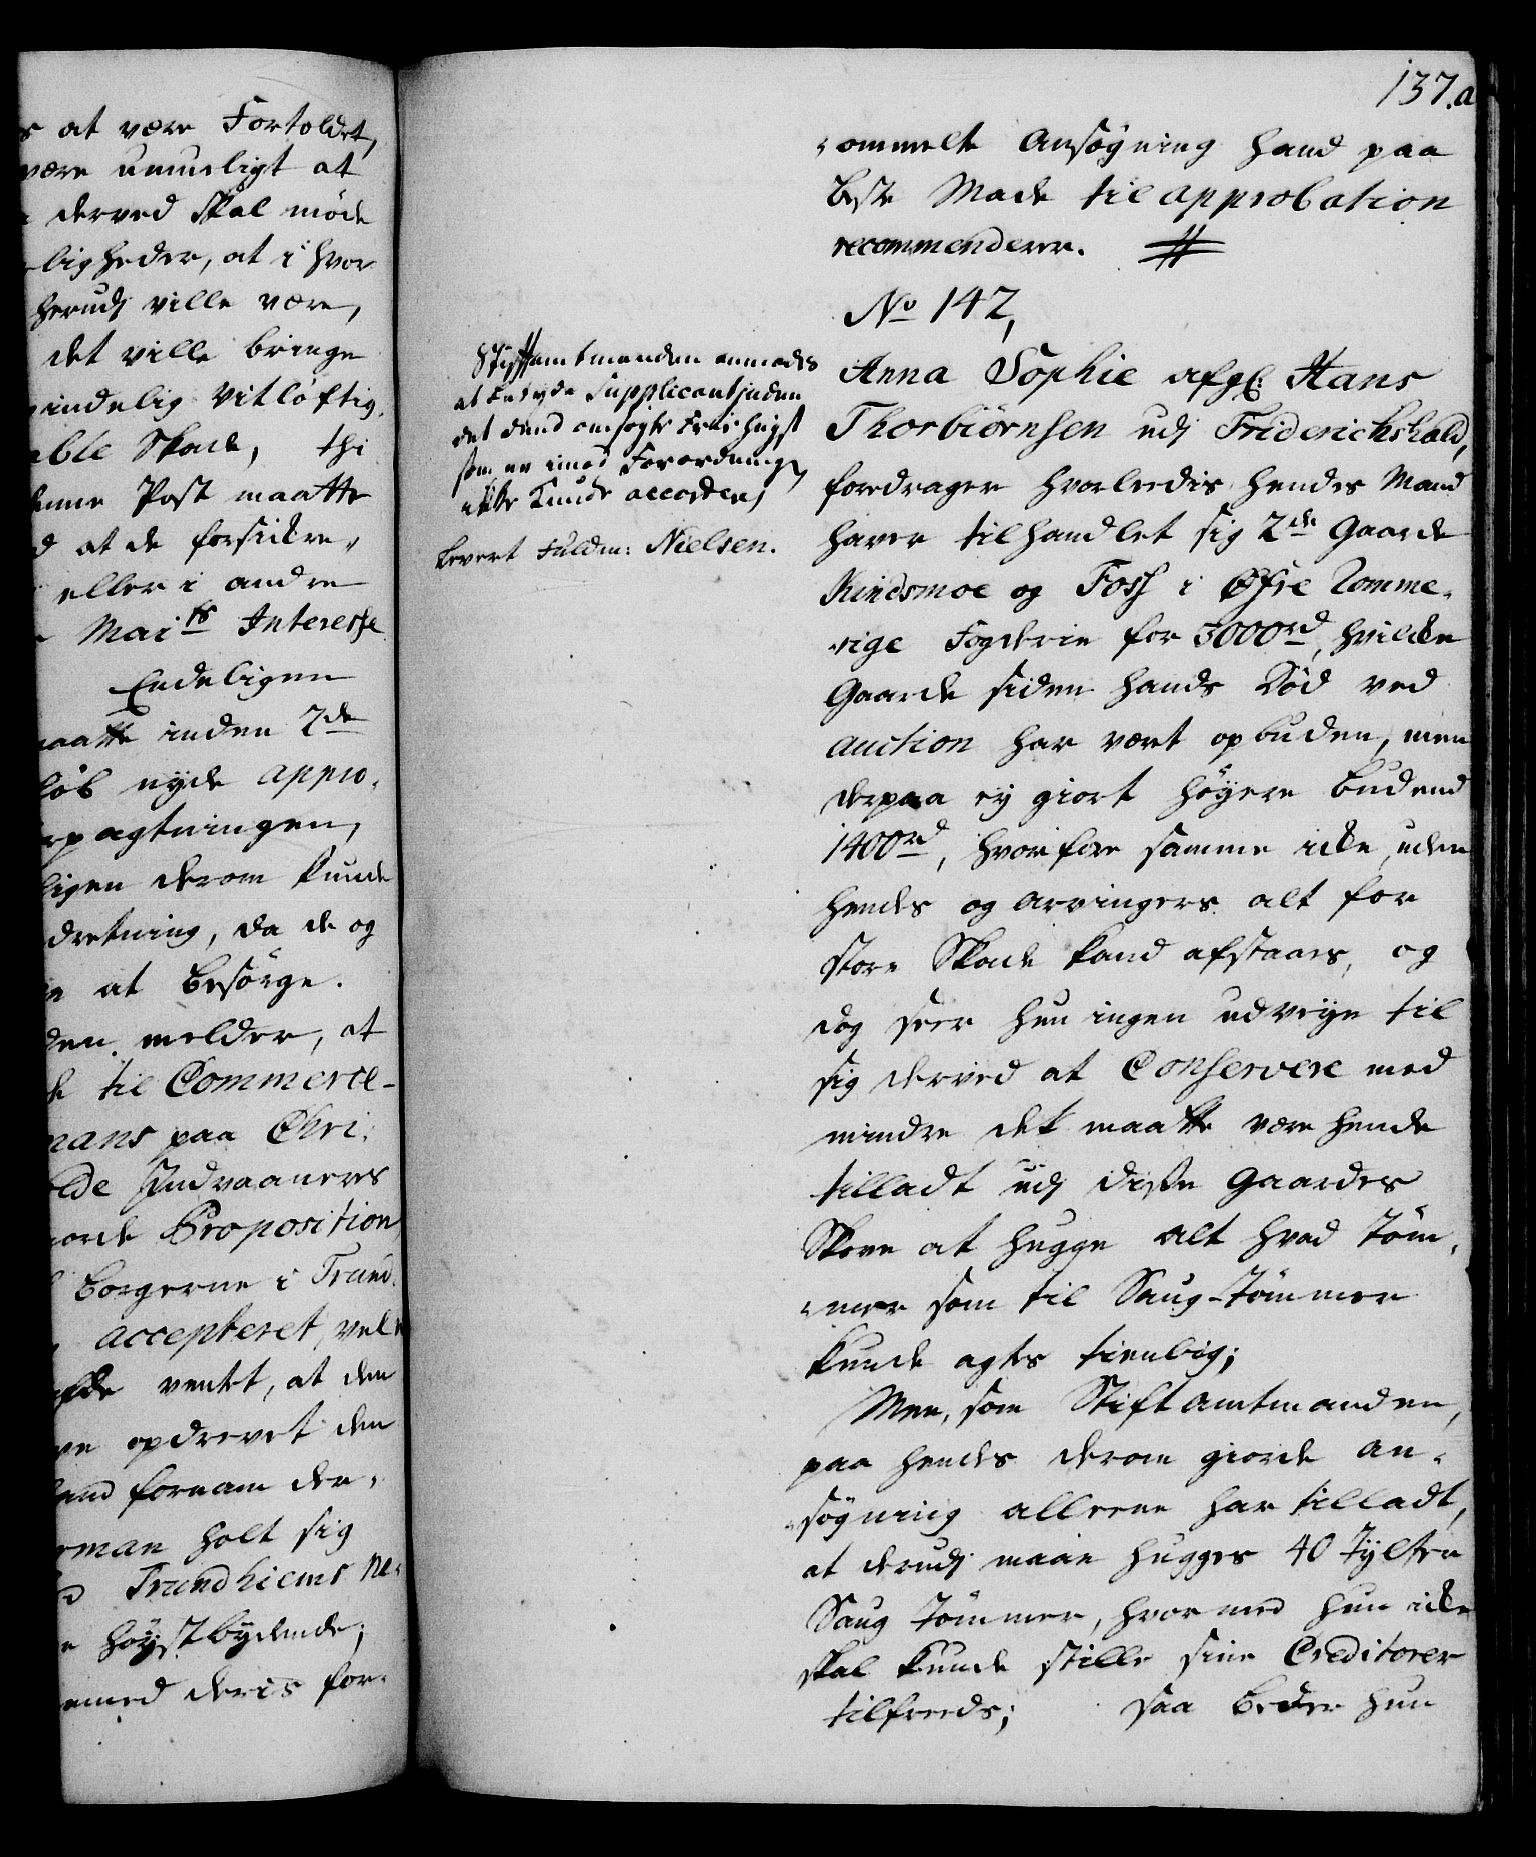 s at være Fortoldet,
være umueligt at
derved skal møde
ligheder, at i hvor
herudj ville være,
det ville bringe
indelig vitløftig,
able Skade, thi
denne Post maatte
d at de forsickre,
eller i andre
Maits Interesse
Endeligen
maatte inden 2de
løb nyde appro,
rpagtningen,
ligen derom kunde
dretning, da de og
at besørge.
den melder, at
til Commerce-
mans paa Chri,
lde Indvaaneres
iorde Proposition
borgerne i Trund,
accepteret, vel
fde ventet, at den
ve opdrevet den
and fornam der,
rman holt sig
Trundhiems ne,
høystbydende;
emed deris for,
137.a
ommelte Ansøgning hand paa
beste Maade til approbation
recommenderer.
No 142,
Stiftamtmanden anmodes
at betyde Supplicantinden
det dend ansøgte frie hugst
som er imod Forordningen
ikke kunde accorderes
levert Fuldm: Nielsen.
Anna Sophie afgl: Hans
Thorbiørnsen udj Friderichshald,
foredrager hvorledis hendes Mand
haver tilhandlet sig 2de Gaarde
Kindsmoe og Foss i Øfre Romme,
rige Fogderie for 3000rd, hvilcke
Gaarde siden hands Død ved
auction har vært opbuden, men
derpaa ey giort høyere bud end
1400rd, hvorfore samme icke, uden
hendes og Arvingers alt for
store Skade kand afstaaes, og
dog seer hun ingen udveye til
sig derved at Conservere med
mindre det maatte være hende
tilladt udj disse Gaardes
Skove at hugge alt hvad Tøm,
mer som til Saug-Tømmer
kunde agtes tienlig;
Men, som Stiftamtmanden,
paa hendes derom giorde An,
søgning alleene har tilladt,
at derudj maae hugges 40 Tylter
Saug Tømmer, hvor med hun icke
skal kunde stille sine Creditorer
tilfreeds; saa beder hun